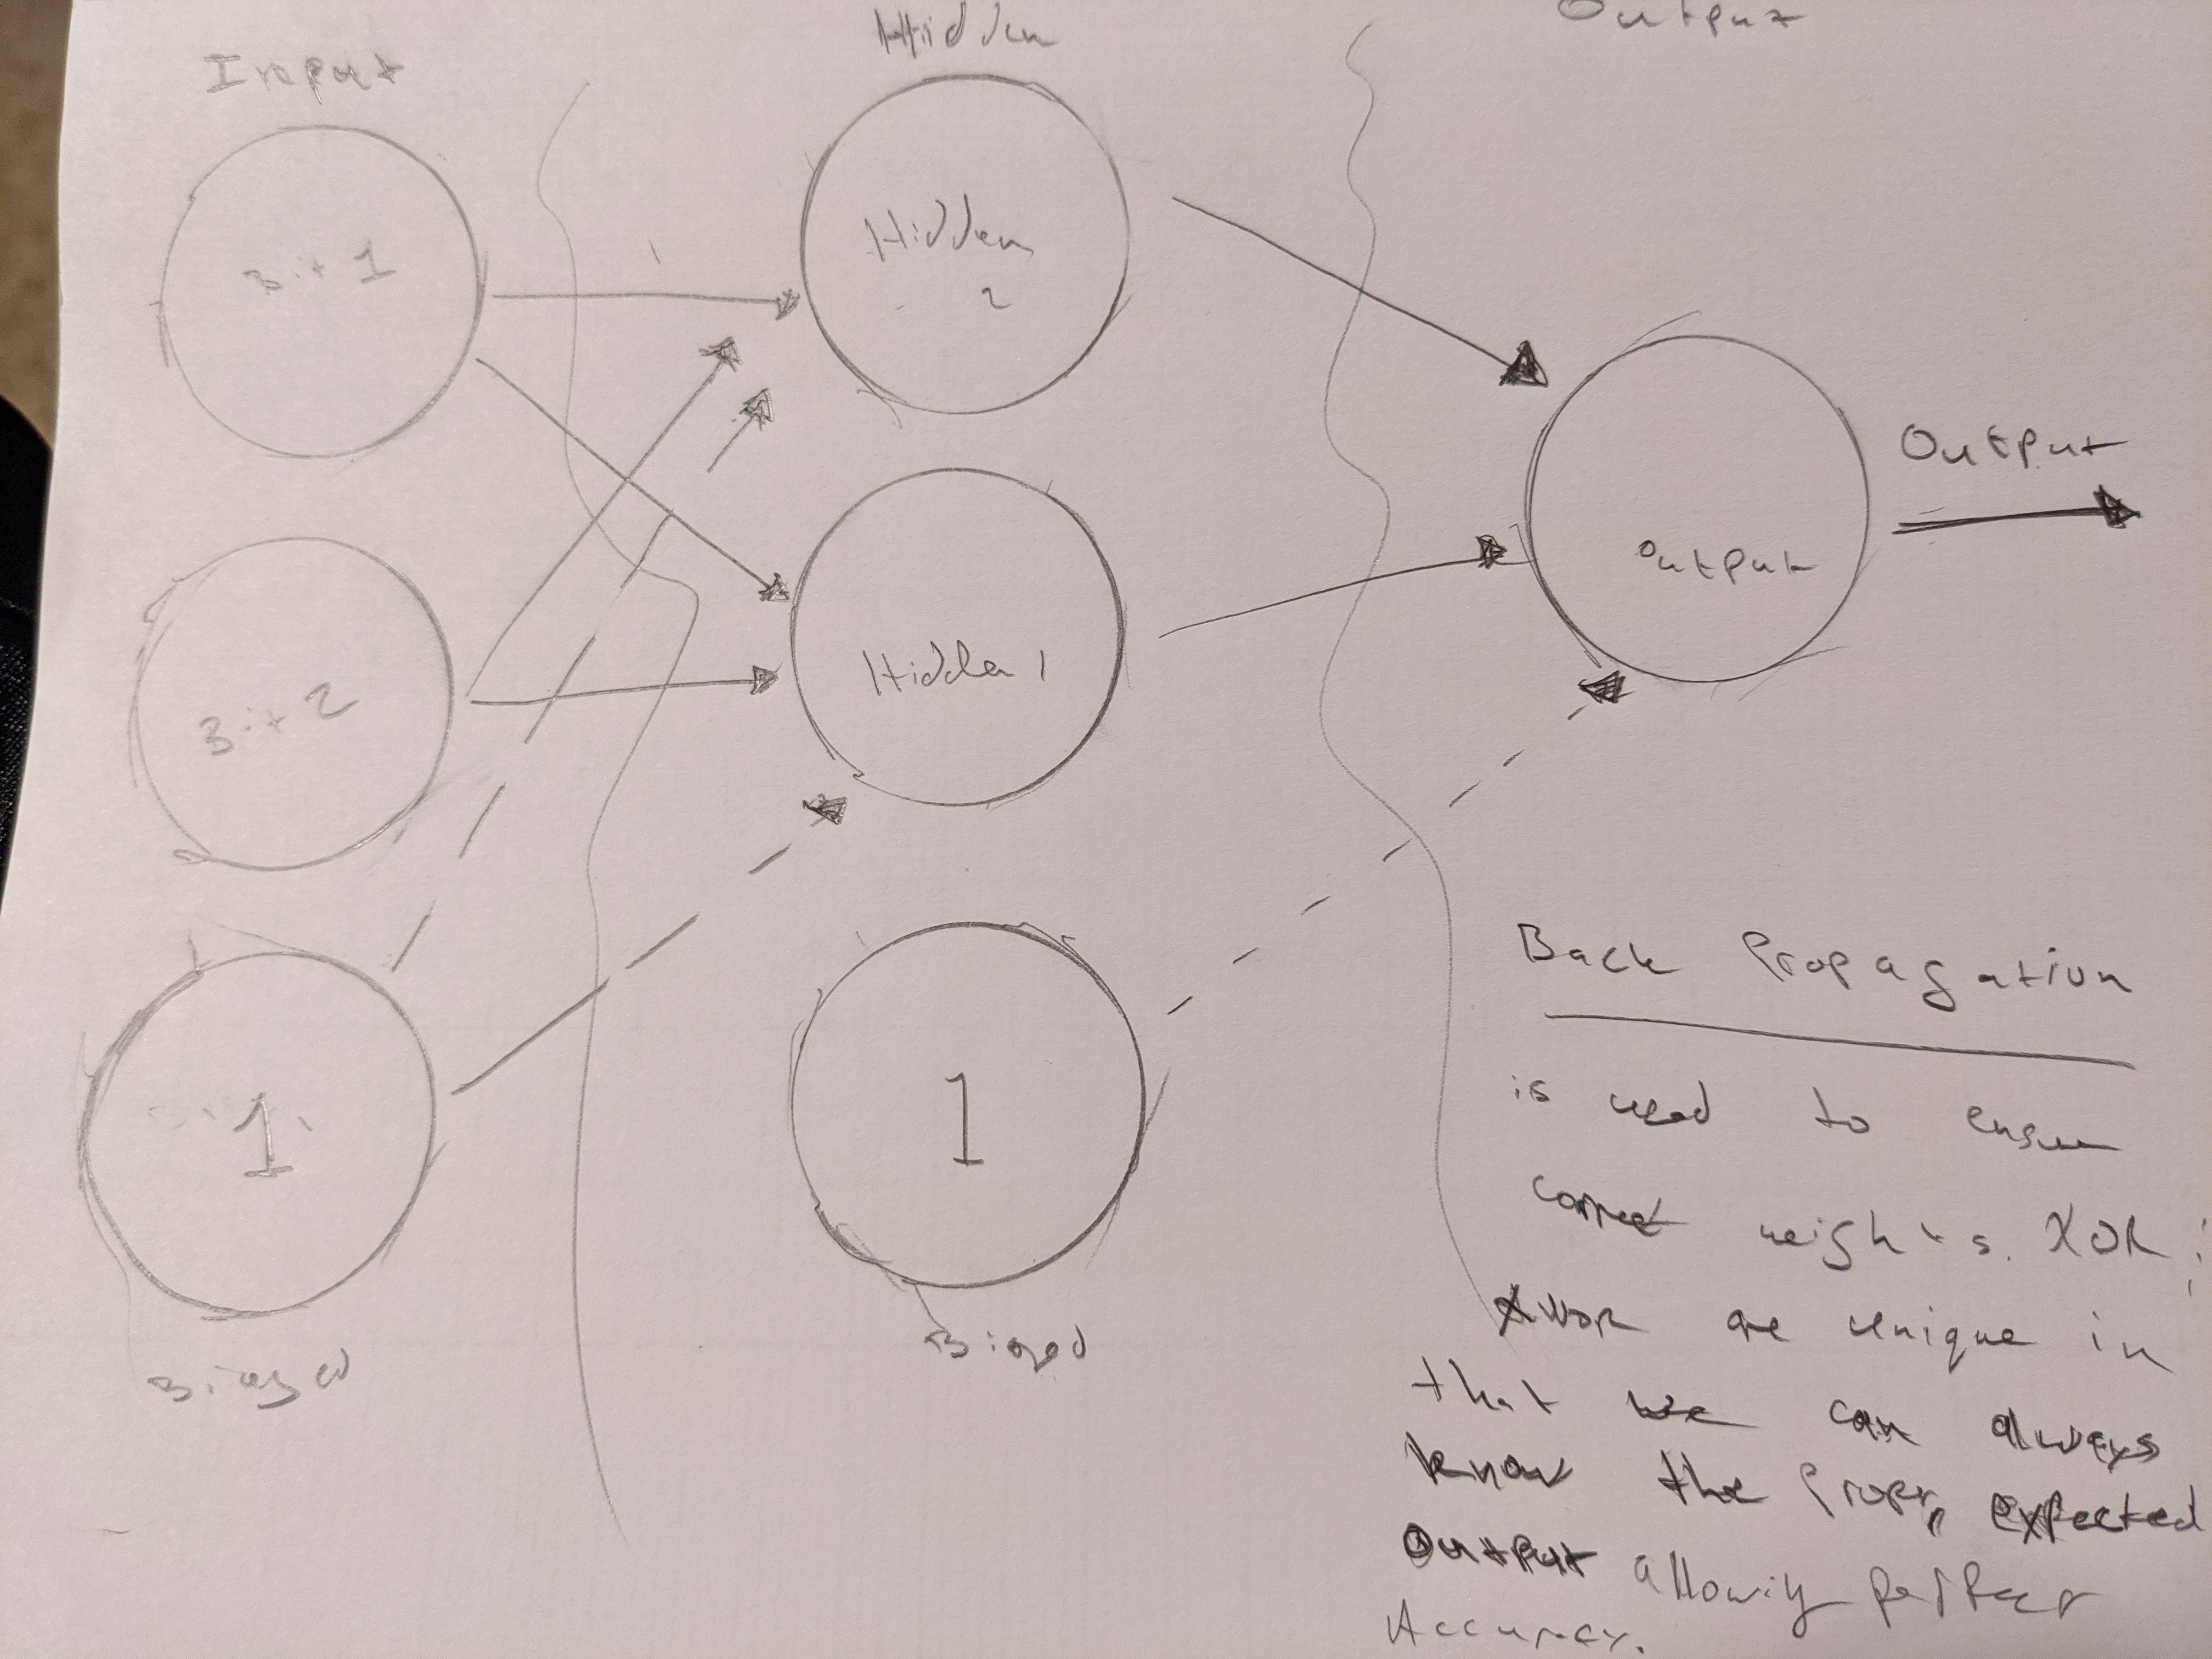 Input
Hidden
Output
Bit 1
Hidden
2
Output
Output
Bit 2
Hidden 1
1
1
Biased
Biased
Back Propagation
is used to ensure
correct weights. XOR;
XNOR are unique in
that we can always
know the proper, expected
output allowing perfect
Accuracy.